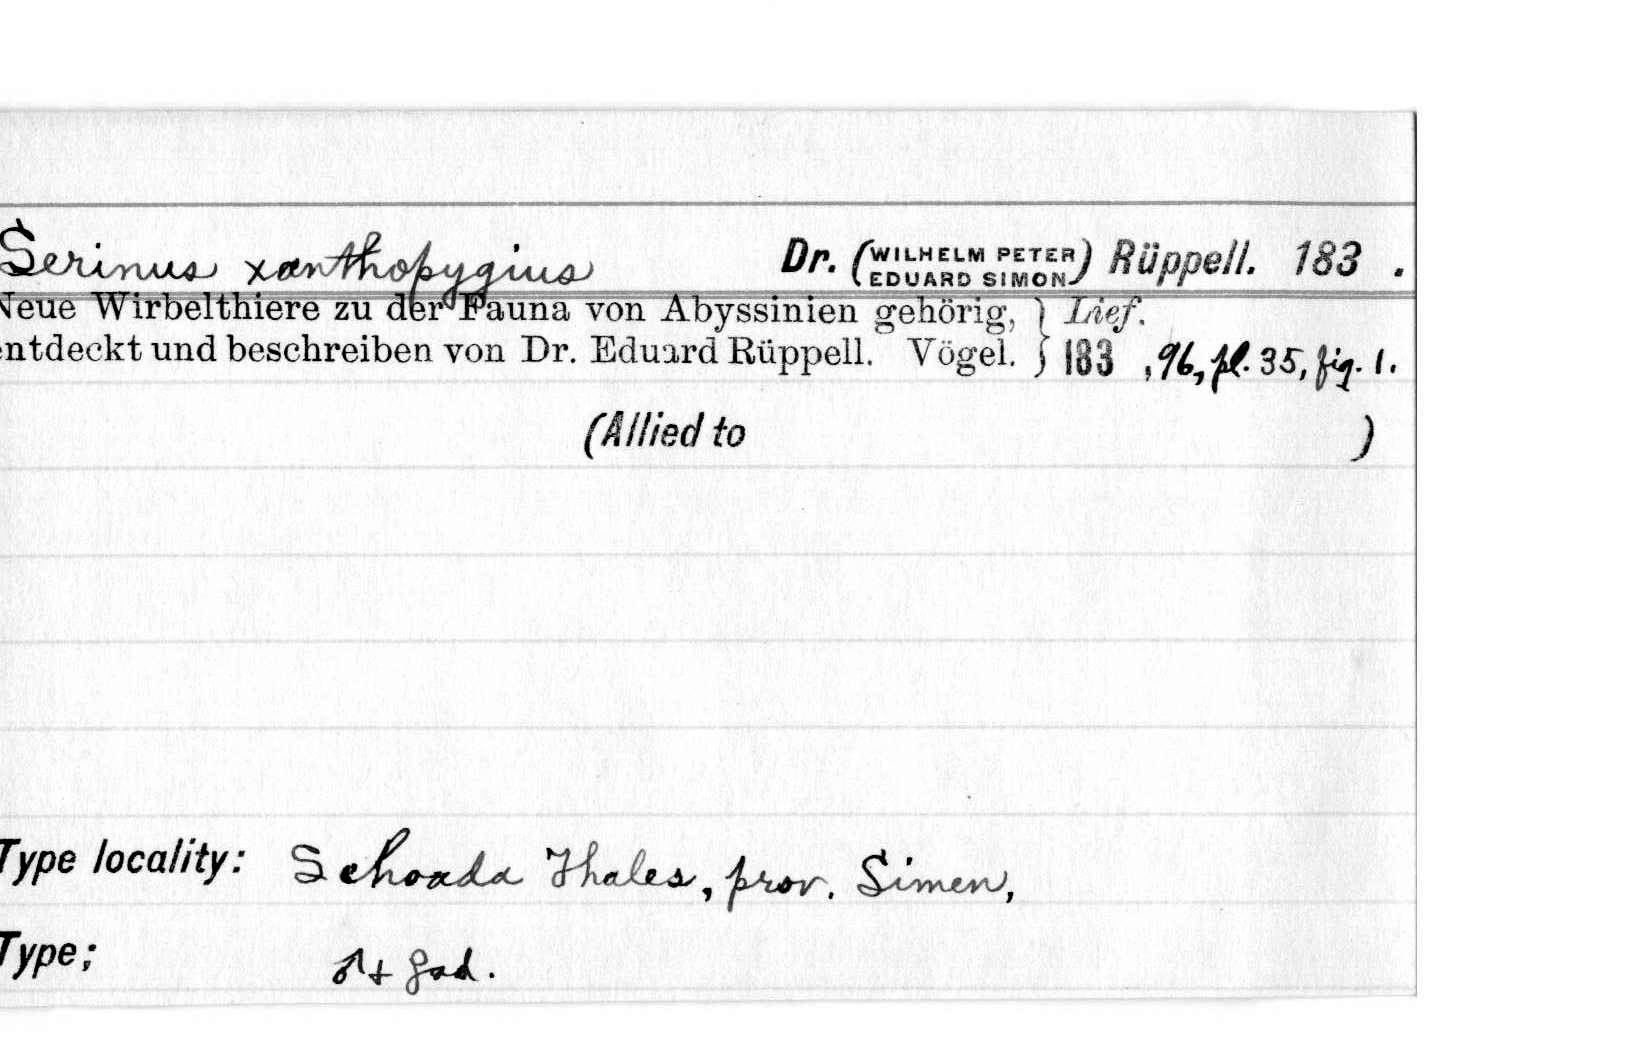 Serinus xanthopygius Dr. (WILHELM PETER EDUARD SIMON) Rüppell. 183 .
Neue Wirbelthiere zu der Fauna von Abyssinien gehörig, } Lief.
entdeckt und beschreiben von Dr. Eduard Rüppell. Vögel. } 183 , 96, pl. 35, fig. 1.
(Allied to )
Type locality: Schoada Thales, prov. Simen,
Type; ♂ + ♀ ad.